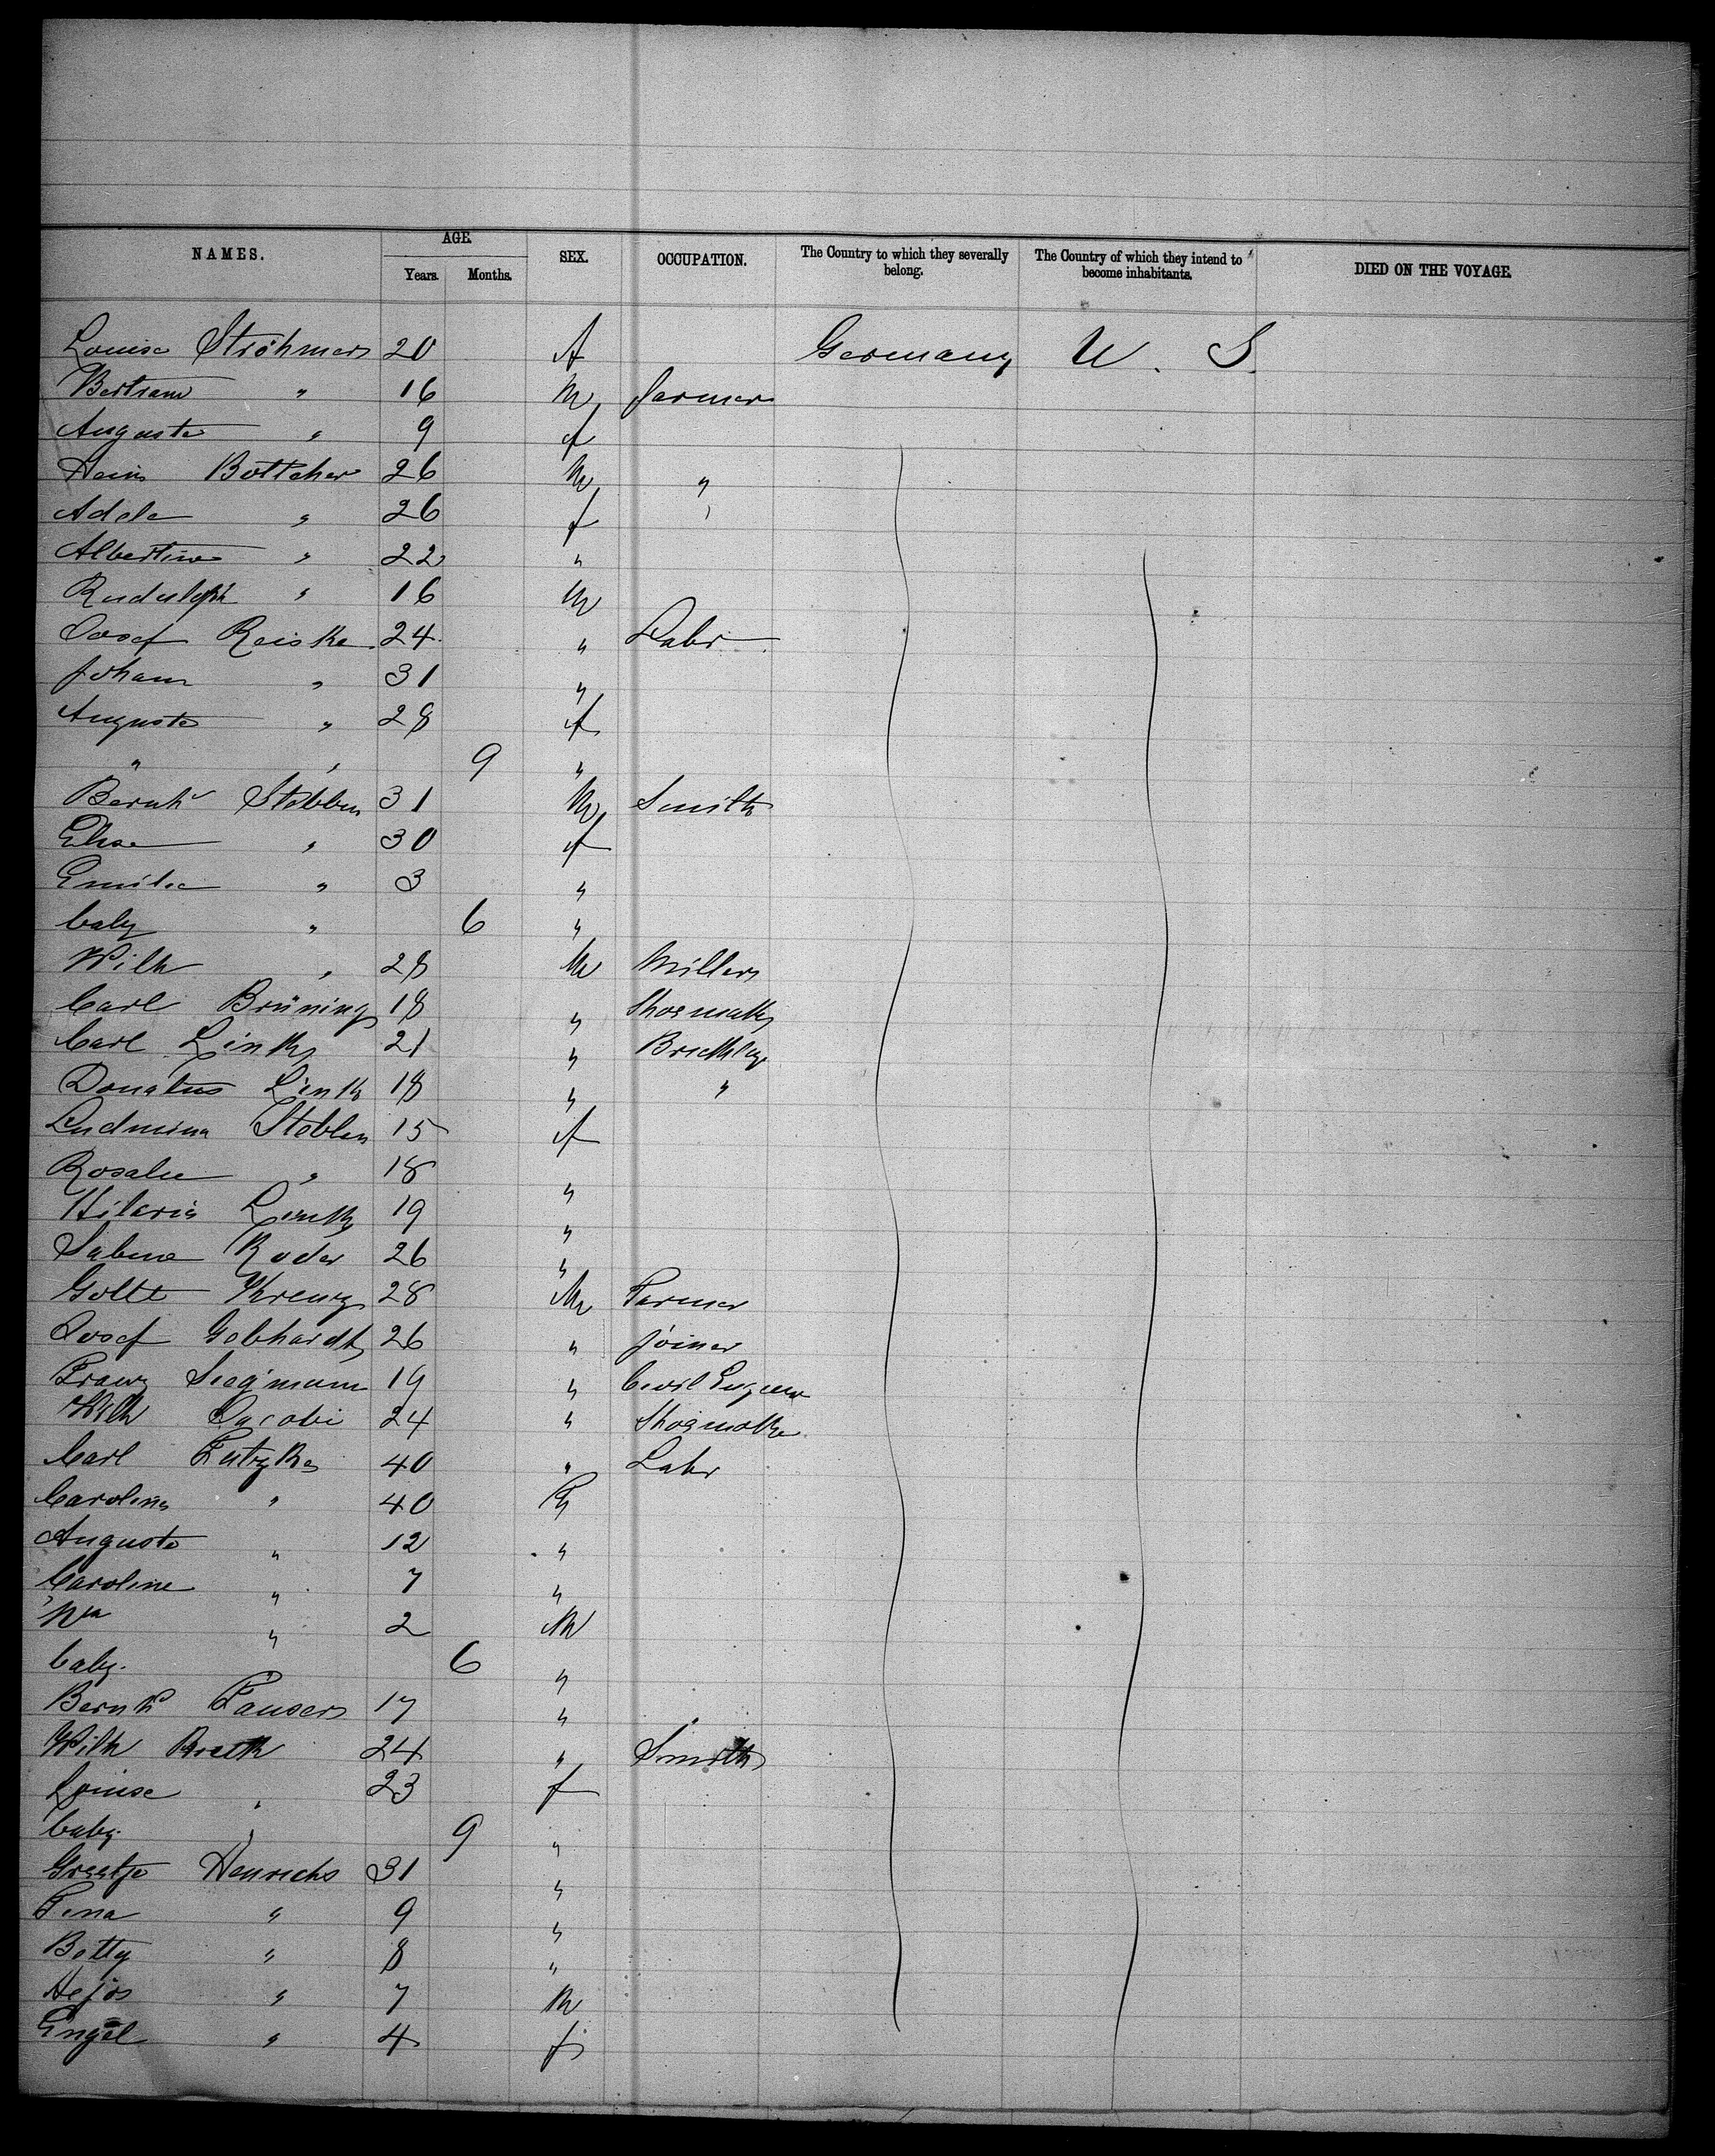 NAMES. AGE. Years. Months. SEX. OCCUPATION. The Country to which they severally belong. The Country of which they intend to become inhabitants. DIED ON THE VOYAGE.
Louise Ströhmer 20 f Germany U. S.
Bertram " 16 M farmer
Auguste " 9 f
Heinr Böttcher 26 M "
Adele " 26 f
Albertine " 22 "
Rudolph " 16 M
Josef Reiske 24 " Labr
Johann " 31 "
Auguste " 28 f
" " 9 "
Bernh Stebben 31 M Smith
Elise " 30 f
Emilie " 3 "
baby " 6 "
Wilh " 28 M Miller
Carl Brüning 18 " Shoemak
Carl Link 21 " Bricklay
Donatus Link 18 " "
Ludmina Steblen 15 f
Rosalie " 18 "
Hilaria Link 19 "
Sabine Roder 26 "
Gottl Kreuz 28 M Farmer
Josef Gebhardt 26 " joiner
Franz Siegmann 19 " Civil Engeneer
Wilh Jacobi 24 " Shoemake
Carl 40 " Labr
Caroline " 40 F
Auguste " 12 "
Caroline " 7 "
Wm " 2 M
baby. " 6 "
Bernh Fauser 17 "
Wilh 24 " Smith
Louise " 23 f
baby. " 9 "
Greetje Henrichs 31 "
Tena " 9 "
Betty " 8 "
" 7 M
Engel " 4 f